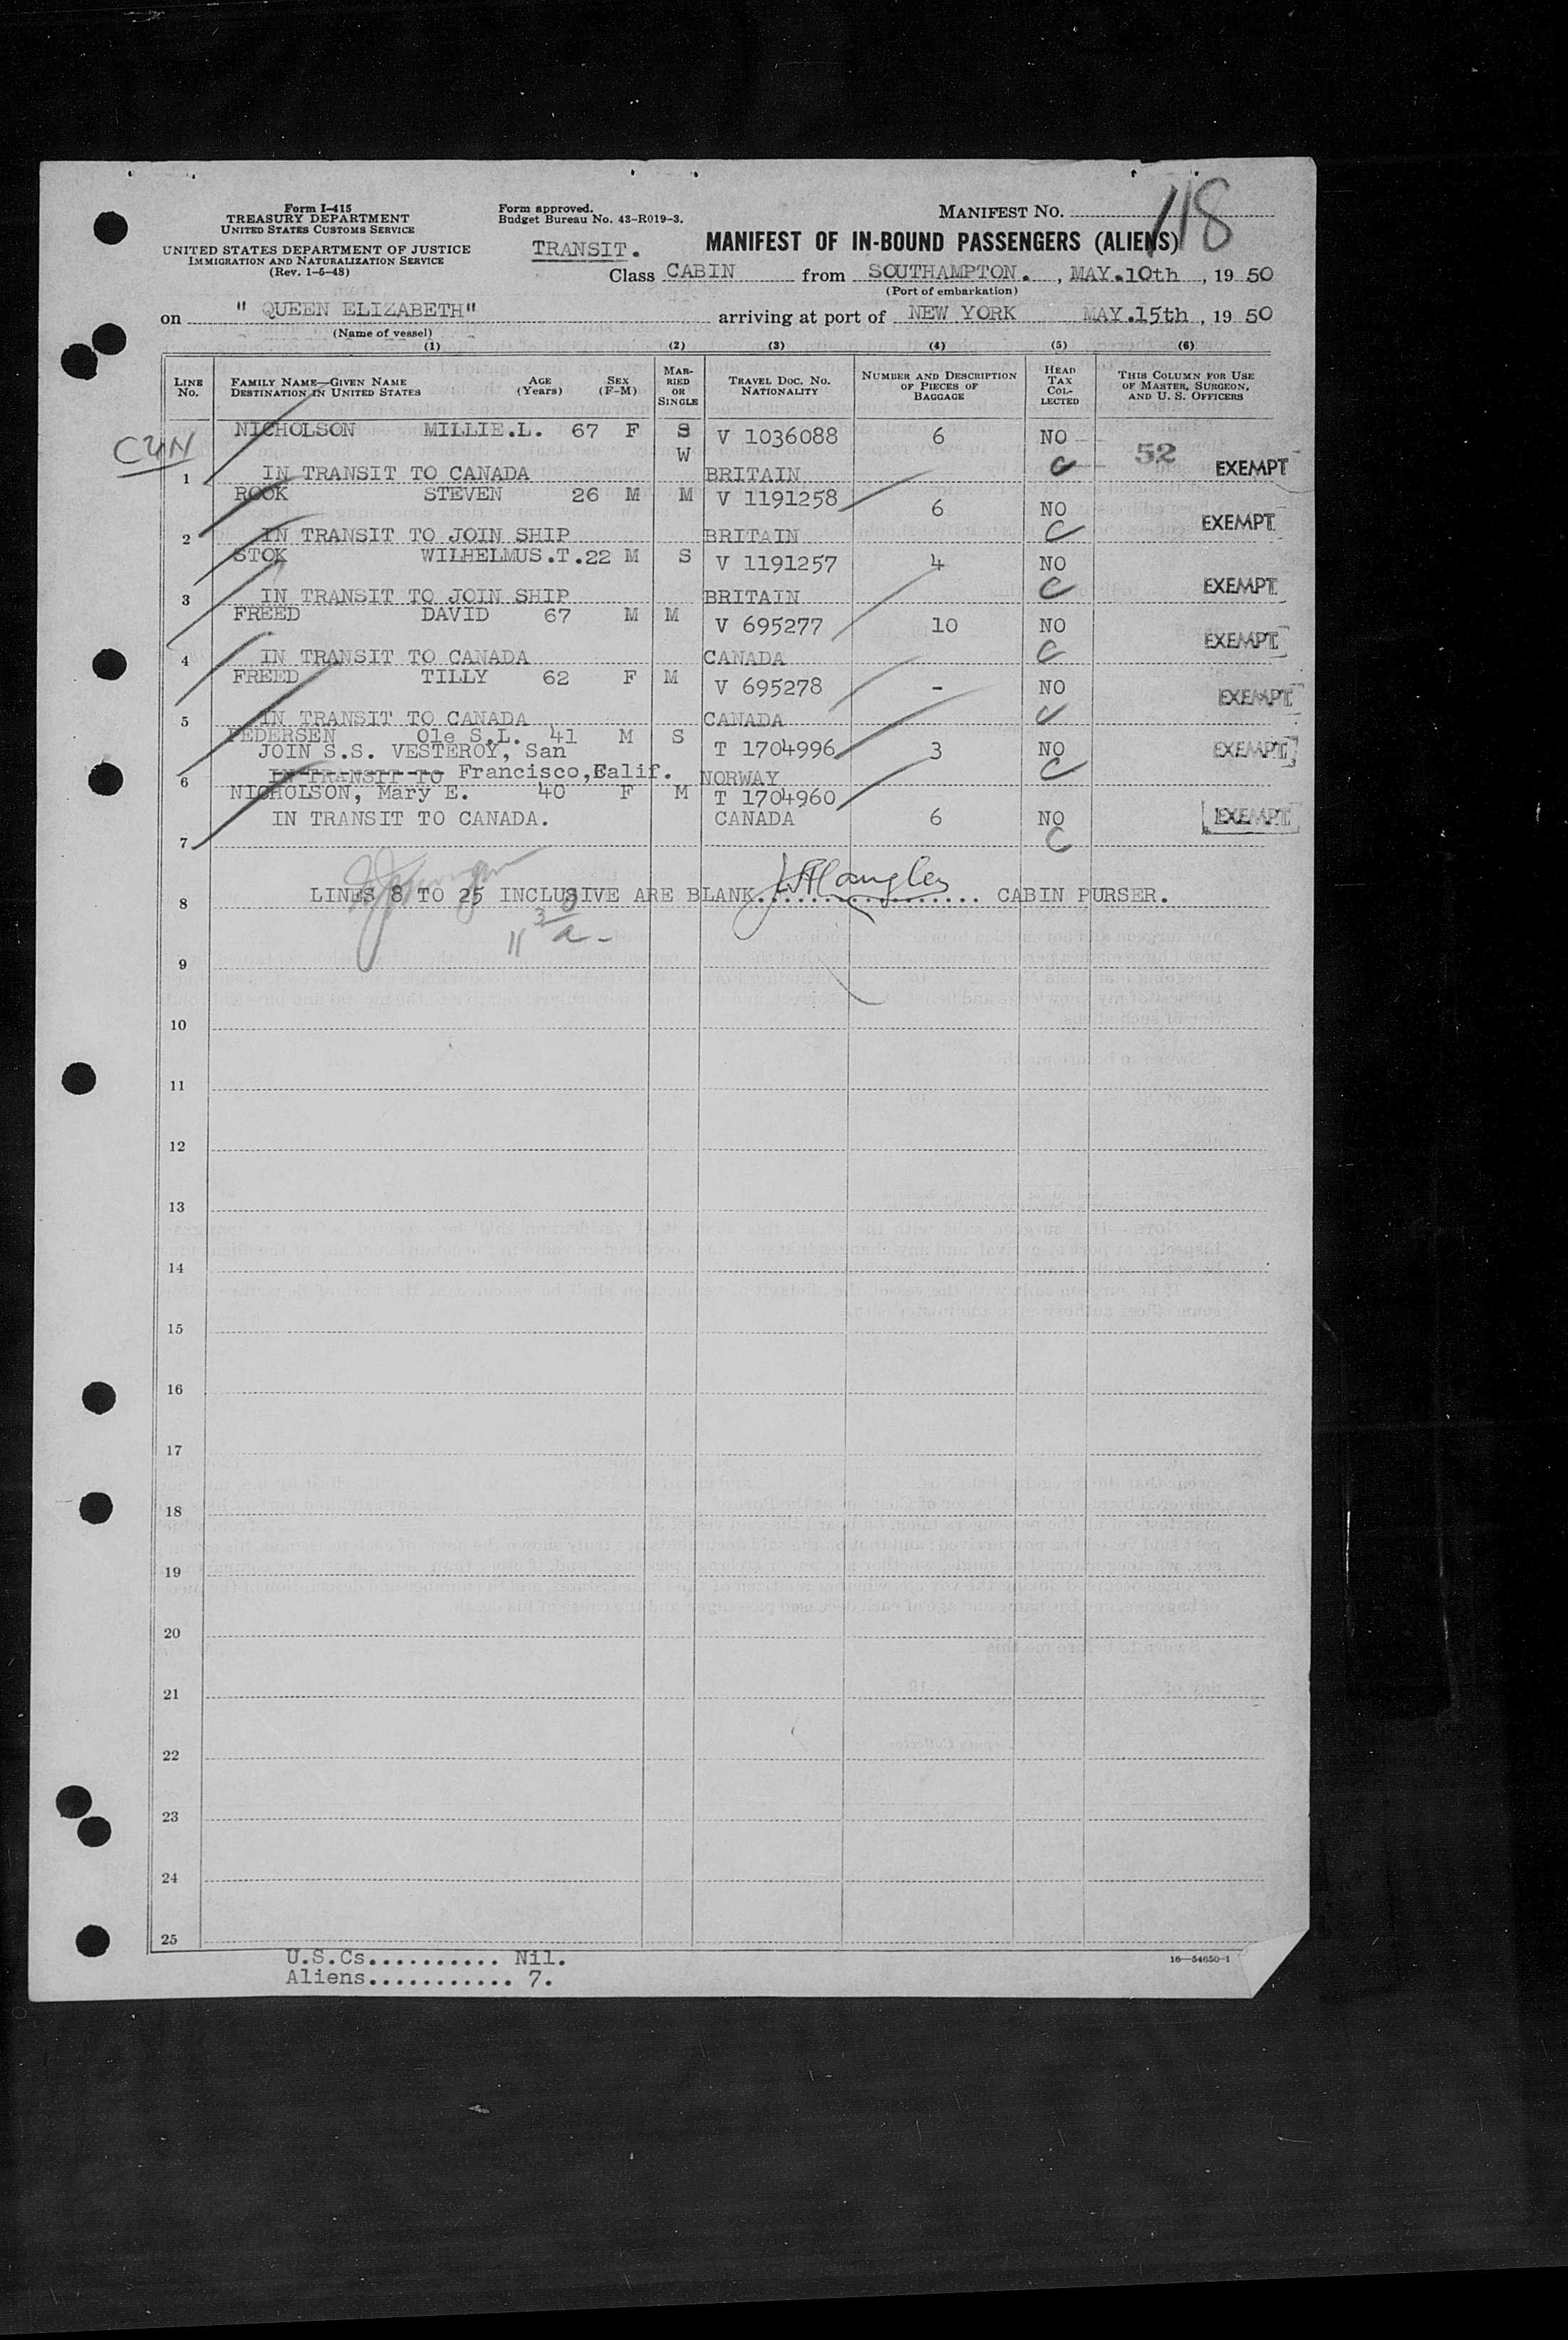 Form I-415
TREASURY DEPARTMENT
UNITED STATES CUSTOMS SERVICE
UNITED STATES DEPARTMENT OF JUSTICE
IMMIGRATION AND NATURALIZATION SERVICE
(Rev. 1-5-48)
Form approved.
Budget Bureau No. 43-R019-3.
TRANSIT.
MANIFEST NO. 118
MANIFEST OF IN-BOUND PASSENGERS (ALIENS)
Class CABIN from SOUTHAMPTON. , MAY.10th , 19 50
(Port of embarkation)
on " QUEEN ELIZABETH" arriving at port of NEW YORK MAY.15th , 19 50
(Name of vessel)
(1) (2) (3) (4) (5) (6)
LINE No. FAMILY NAME—GIVEN NAME DESTINATION IN UNITED STATES AGE (Years) SEX (F-M) MARRIED OR SINGLE TRAVEL DOC. NO. NATIONALITY NUMBER AND DESCRIPTION OF PIECES OF BAGGAGE HEAD TAX COLLECTED THIS COLUMN FOR USE OF MASTER, SURGEON, AND U. S. OFFICERS
NICHOLSON MILLIE.L. 67 F S V 1036088 6 NO
W 52
1 IN TRANSIT TO CANADA BRITAIN C EXEMPT
ROOK STEVEN 26 M M V 1191258 6 NO
2 IN TRANSIT TO JOIN SHIP BRITAIN C EXEMPT
STOK WILHELMUS.T.22 M S V 1191257 4 NO
3 IN TRANSIT TO JOIN SHIP BRITAIN C EXEMPT
FREED DAVID 67 M M V 695277 10 NO
4 IN TRANSIT TO CANADA CANADA C EXEMPT
FREED TILLY 62 F M V 695278 - NO
5 IN TRANSIT TO CANADA CANADA C EXEMPT
PEDERSEN Ole S.L. 41 M S T 1704996 3 NO
JOIN S.S. VESTEROY, San
6 IN TRANSIT TO Francisco,Ealif. NORWAY C EXEMPT
NICHOLSON, Mary E. 40 F M T 1704960
7 IN TRANSIT TO CANADA. CANADA 6 NO C EXEMPT
8 LINES 8 TO 25 INCLUSIVE ARE BLANK................. CABIN PURSER.
9
10
11
12
13
14
15
16
17
18
19
20
21
22
23
24
25
U.S.Cs.......... Nil.
Aliens........... 7.
16—54650-1